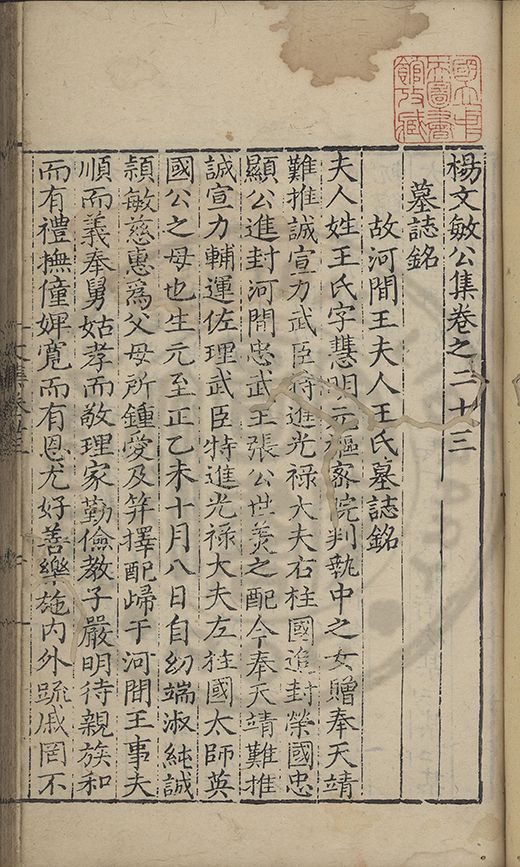 楊文敏公集卷之二十三
墓誌銘
故河間王夫人王氏墓誌銘
夫人姓王氏字慧明元樞密院判執中之女贈奉天靖
難推誠宣力武臣特進光祿大夫右柱國追封榮國忠
顯公進封河間忠武王張公世美之配今奉天靖難推
誠宣力輔運佐理武臣特進光祿大夫左柱國太師英
國公之母也生元至正乙未十月八日自幼端淑純誠
頴敏慈惠爲父母所鍾愛及笄擇配歸于河間王事夫
順而義奉舅姑孝而敬理家勤儉教子嚴明待親族和
而有禮撫僮婢寬而有恩尤好善樂施內外踈戚罔不
國立中央圖書館收藏